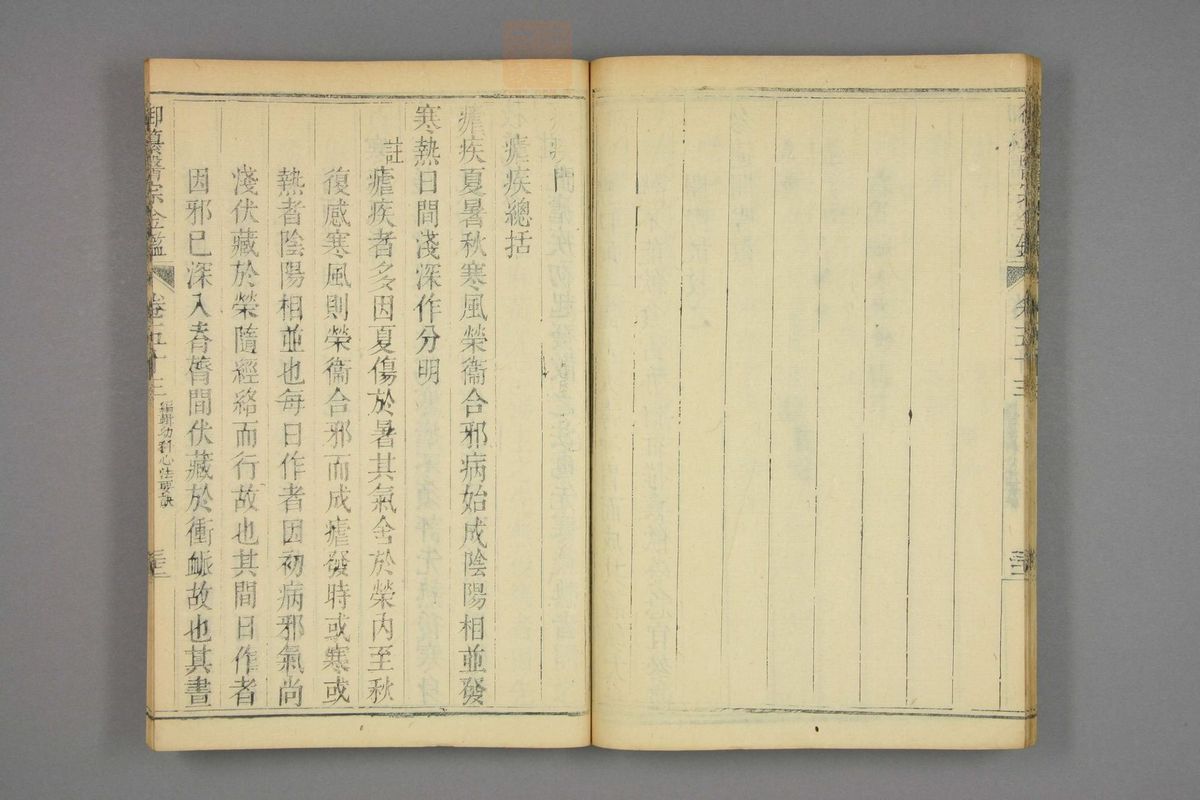 瘧疾總括
瘧疾夏暑秋寒風榮衞合邪病始成陰陽相並發
寒熱日間淺深作分明
註
瘧疾者多因夏傷於暑其氣舍於榮内至秋
復感寒風則榮衞合邪而成瘧發時或寒或
熱者陰陽相並也每日作者因初病邪氣尚
淺伏藏於榮隨經絡而行故也其間日作者
因邪已深入脊膂間伏藏於衝脈故也其晝
御纂醫宗金鑑
卷五十三
編輯幼科心法要訣